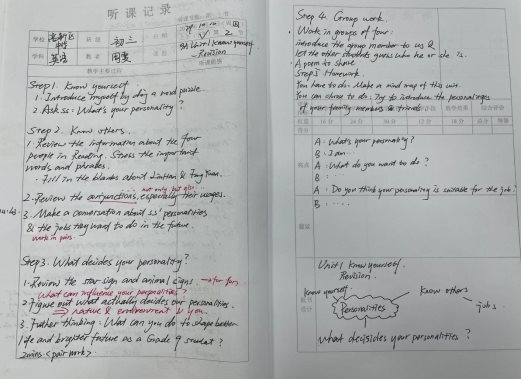 听课记录
学校
班级 初三
学科 英语
教者 周斐
9A Unit 1 Know yourself
Revision
教学主要过程
听课随感
Step 1. Know yourself
1. Introduce myself by doing a word puzzle.
2. Ask Ss: What's your personality?
Step 2. Know others.
1. Review the information about the four
people in Reading. Stress the important
words and phrases.
· Fill in the blanks about
not only but also
2. Review the conjunctions, especially their usages.
3. Make a conversation about ss' personalities
& the jobs they want to do in the future.
work in pairs.
Step 3. What decides your personality?
1. Review the star sign and animal signs → for fun
What can influence your personalities
2. Figure out what actually decides our personalities.
⇒ nature & environment & you.
3. Futher thinking: What can you do to shape better
life and brighter future as a Grade 9 student?
2mins. <pair work>
Step 4. Group work.
Work in groups of four:
introduce the group member to us &
let the other students guess who he or she is.
A poem to share
Step 5 Homework.
You have to do: Make a mind map of this unit.
You can choose to do: Try to introduce the personalities
of your family members to friends.
A: What's your personality?
B: I am
A: What do you want to do?
B: ....
A: Do you think your personality is suitable for the job?
B: .....
Unit 1 Know yourself.
Revision.
Know yourself.
Know others
jobs
Personalities
What decisides your personalities?